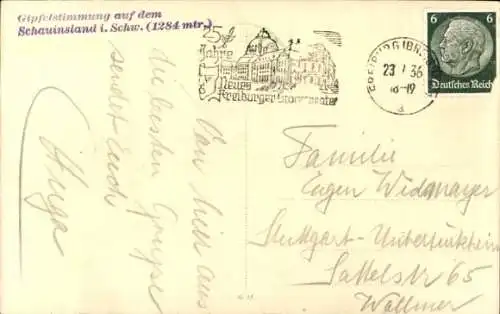 Gipfelstimmung auf dem
Schauinsland i. Schw. (1284 mtr.)
25
Jahre
Neues
Freiburger Stadttheater
FREIBURG (BREISGAU)
23 36
18-19
a
6 6
Deutsches Reich
Von hier aus
die besten Grüsse
sendet Euch
Familie
Eugen Widmayer
Stuttgart-Untertürkheim
Sattelstr 65
Wallmer